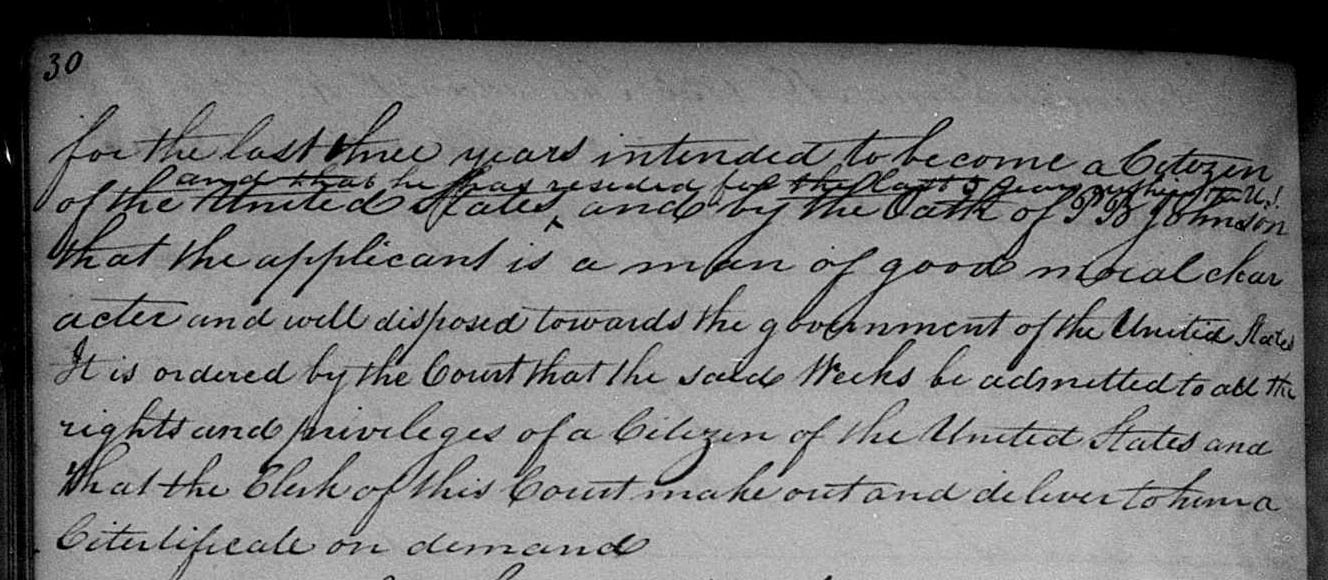 30
for the last three years intended to become a Citizen
and that he has resided for the last 5 years within the U.S.
of the United States, and by the Oath of P B Johnson
that the applicant is a man of good moral char
acter and well disposed towards the government of the United States
It is ordered by the Court that the said Weeks be admitted to all the
rights and privileges of a Citizen of the United States and
that the Clerk of this Court make out and deliver to him a
Citertificate on demand